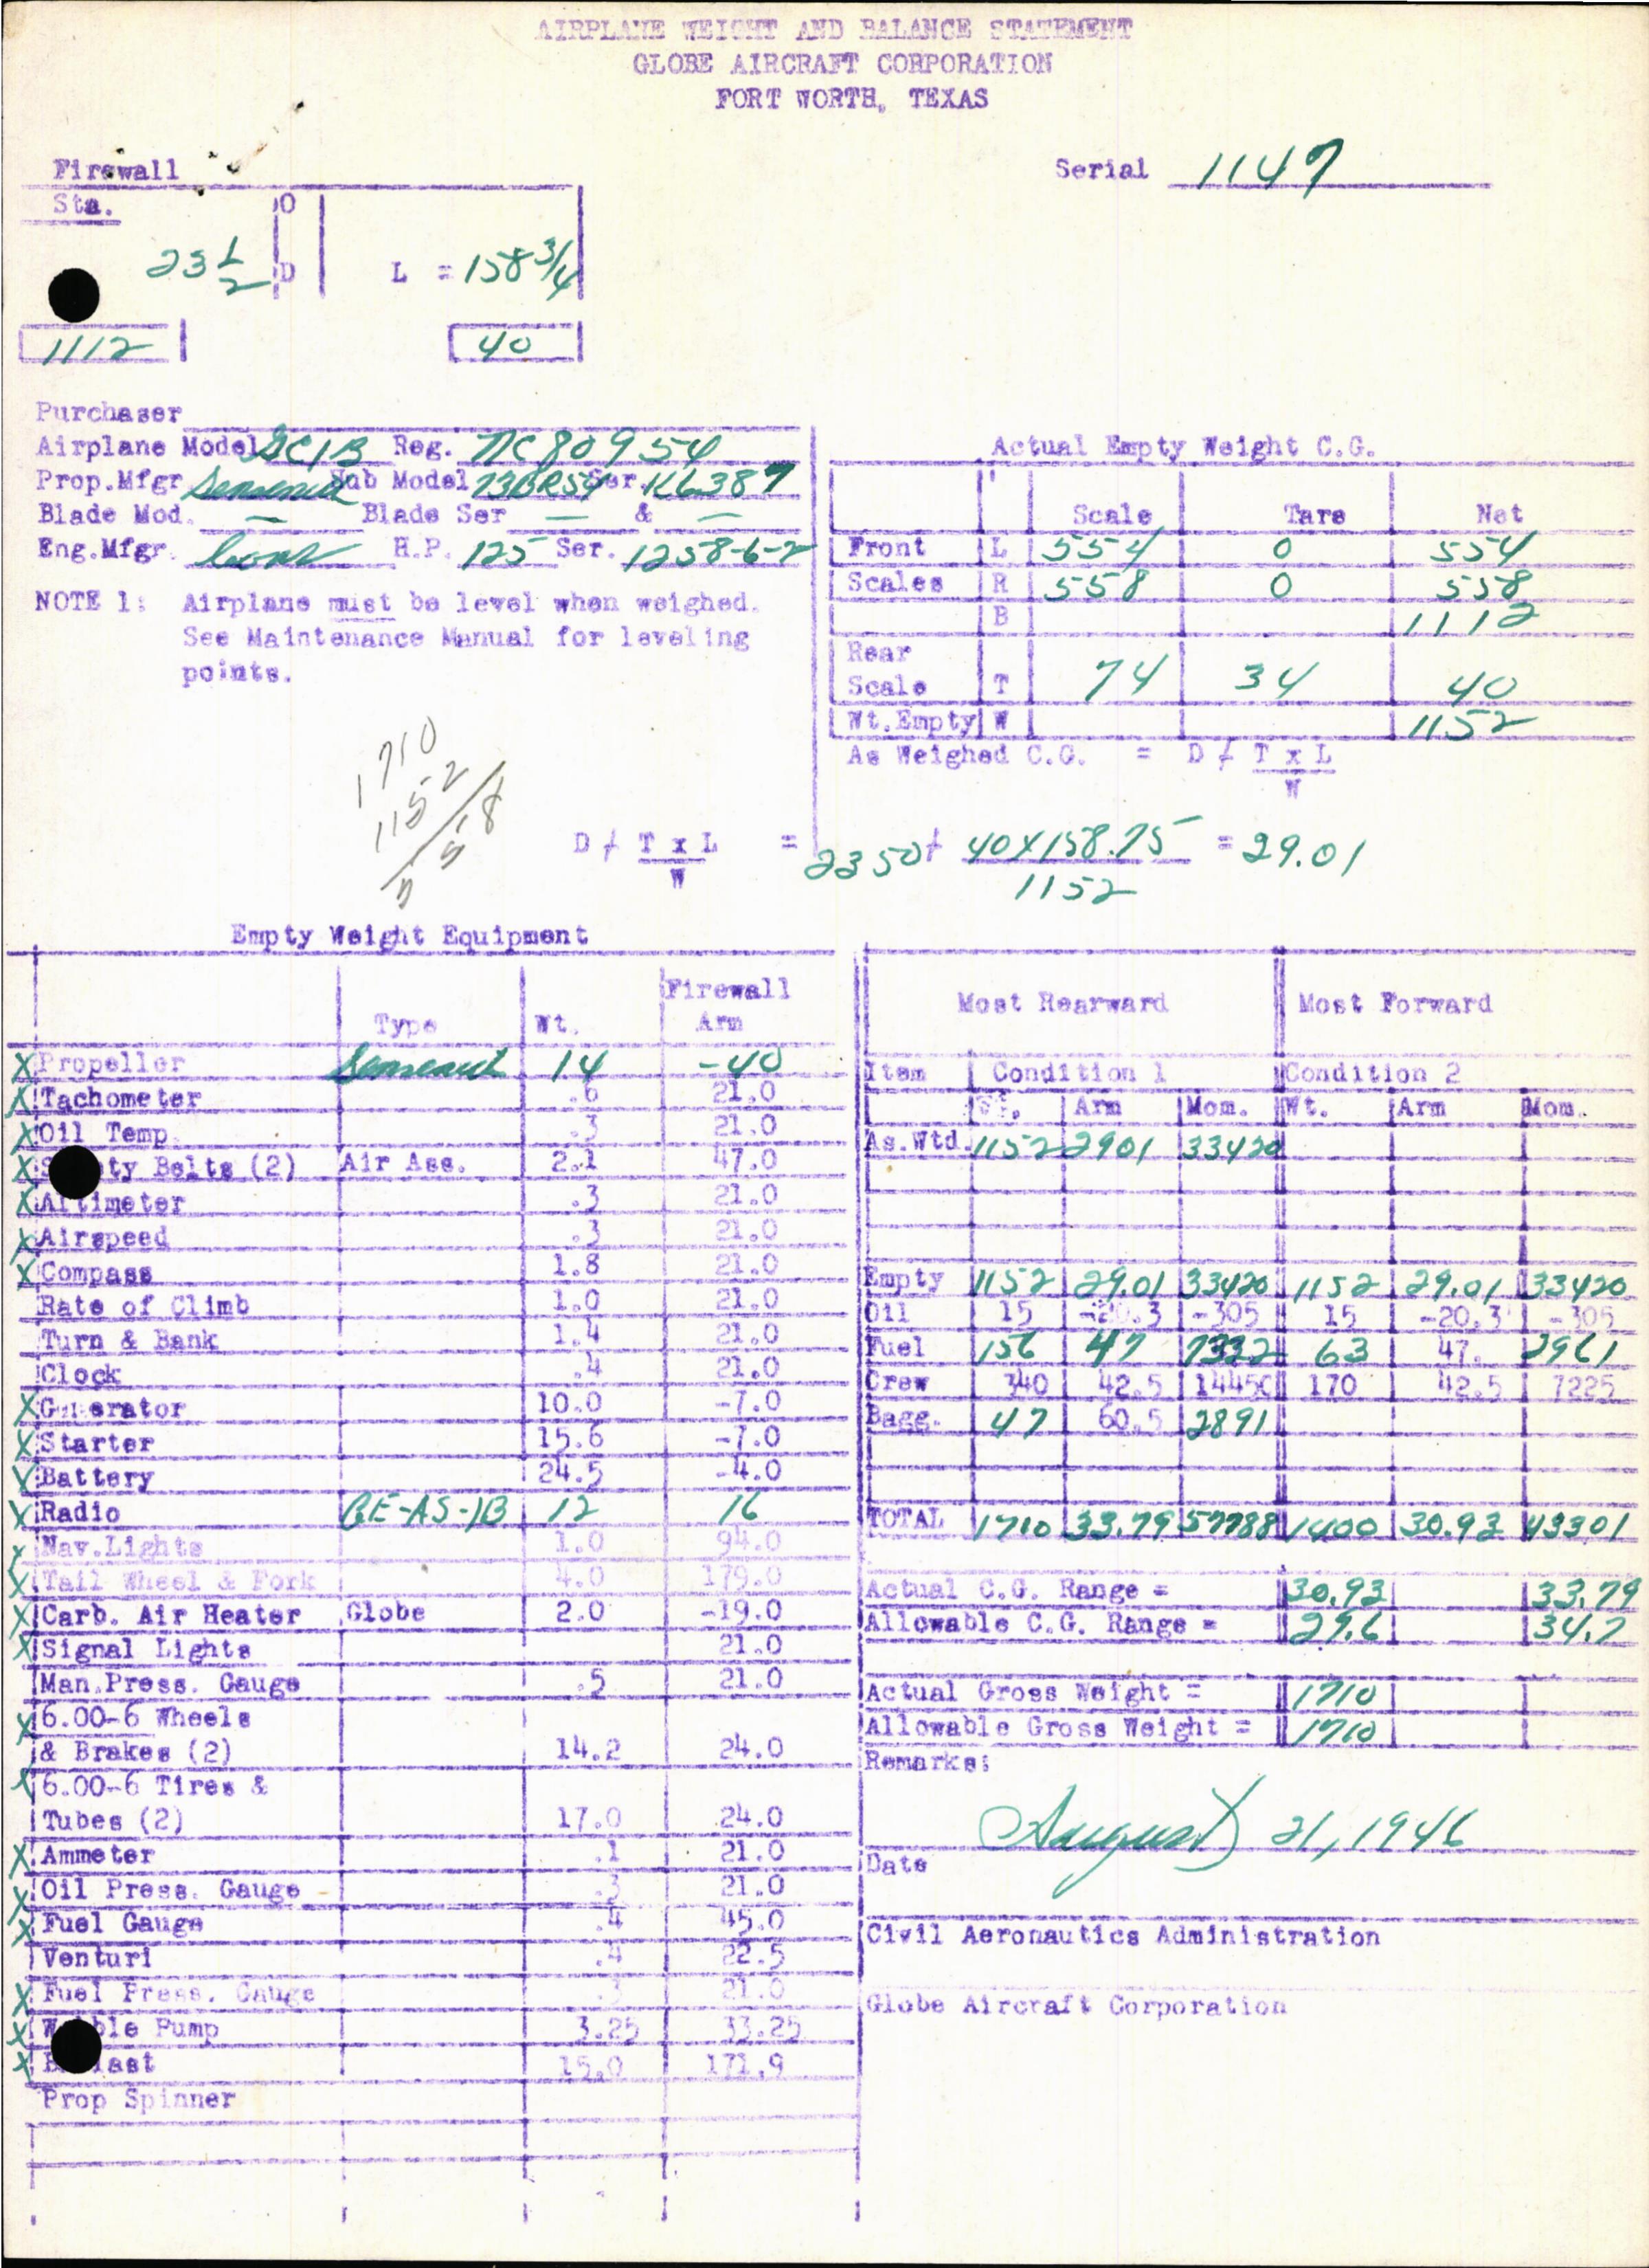 AIRPLANE WEIGHT AND BALANCE STATEMENT
GLOBE AIRCRAFT CORPORATION
FORT WORTH, TEXAS
Firewall
Serial 1147
Sta. O
23 1/2 D L = 158 3/4
1112 40
Purchaser
Airplane Model GC1B Reg. NC80954
Prop.Mfgr Sensenich Hub Model 73BR54 Ser. K6387
Blade Mod. — Blade Ser — & —
Eng.Mfgr. Cont H.P. 125 Ser. 1258-6-2
NOTE 1: Airplane must be level when weighed.
See Maintenance Manual for leveling
points.
Actual Empty Weight C.G.
Scale Tare Net
Front L 554 0 554
Scales R 558 0 558
B 1112
Rear
Scale T 74 34 40
Wt.Empty W 1152
As Weighed C.G. = D ≠ T x L
W
1710
1152
558
D ≠ T x L = 2350 + 40X158.75 = 29.01
W 1152
Empty Weight Equipment
Type Wt. Firewall Arm
X Propeller Sensenich 14 -40
X Tachometer .6 21.0
X Oil Temp. .3 21.0
X S ty Belts (2) Air Ass. 2.1 47.0
X Altimeter .3 21.0
X Airspeed .3 21.0
X Compass 1.8 21.0
Rate of Climb 1.0 21.0
Turn & Bank 1.4 21.0
Clock .4 21.0
X Generator 10.0 -7.0
X Starter 15.6 -7.0
X Battery 24.5 -4.0
X Radio GE-AS-1B 12 16
X Nav.Lights 1.0 94.0
X Tail Wheel & Fork 4.0 179.0
X Carb. Air Heater Globe 2.0 -19.0
X Signal Lights 21.0
Man.Press. Gauge .5 21.0
X 6.00-6 Wheels
& Brakes (2) 14.2 24.0
X 6.00-6 Tires &
Tubes (2) 17.0 24.0
X Ammeter .1 21.0
X Oil Press. Gauge .3 21.0
X Fuel Gauge .4 45.0
Venturi .4 22.5
X Fuel Press. Gauge .3 21.0
X W ble Pump 3.25 33.25
X B last 15.0 171.9
Prop Spinner
Most Rearward Most Forward
Item Condition 1 Condition 2
Wt. Arm Mom. Wt. Arm Mom.
As.Wtd. 1152 2901 33420
Empty 1152 29.01 33420 1152 29.01 33420
Oil 15 -20.3 -305 15 -20.3 -305
Fuel 156 47 7332 63 47. 2961
Crew 340 42.5 14450 170 42.5 7225
Bagg. 47 60.5 2891
TOTAL 1710 33.79 57788 1400 30.93 43301
Actual C.G. Range = 30.93 33.79
Allowable C.G. Range = 29.6 34.7
Actual Gross Weight = 1710
Allowable Gross Weight = 1710
Remarks:
August 21, 1946
Date
Civil Aeronautics Administration
Globe Aircraft Corporation